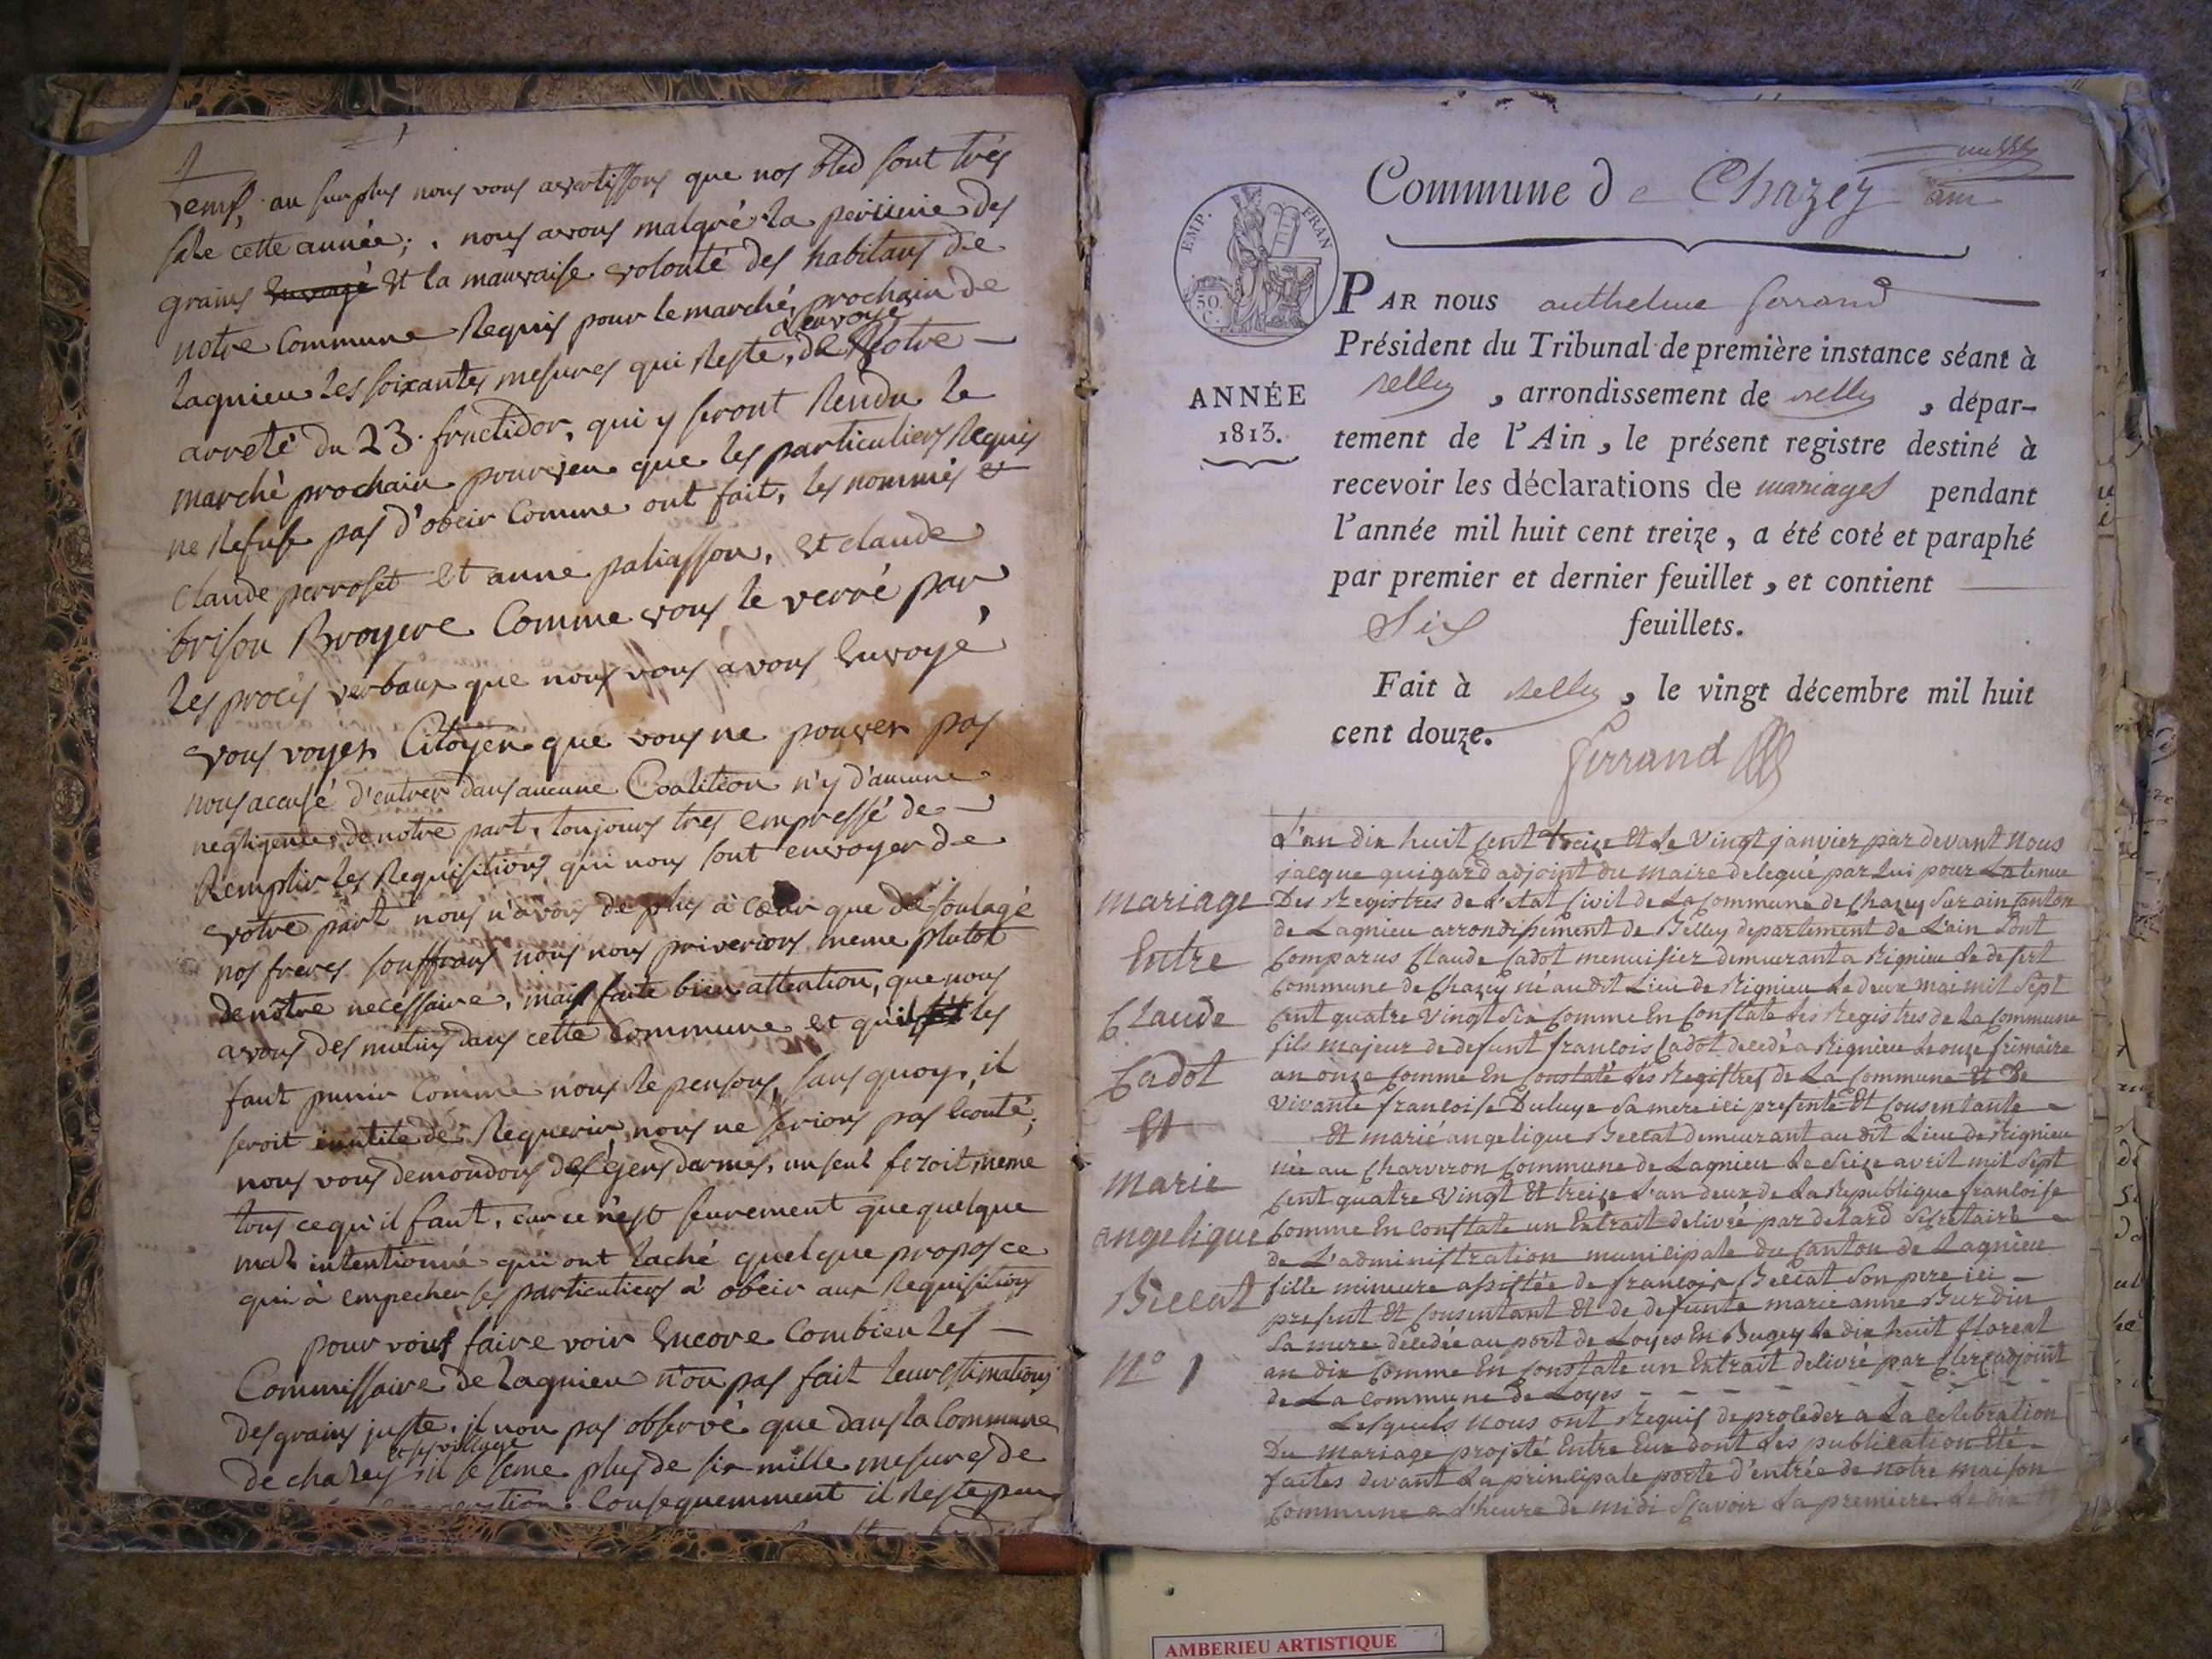 temps, au surplus nous vous avertissons que nos bled sont très
sale cette année; nous avons malgré la des
grains envoyé et la mauvaise volonté des habitans de
notre Commune Requis pour le marché prochain de
Lagnieu les soixantes mesures qui Reste, d'envoyé de Notre
arreté du 23. fructidor, qui y seront Rendu le
marché prochain pourveu que les particuliers Requis
ne Refuse pas d'obeir Comme ont fait, les nommés et
Claude perroset et anne paliasson, et claude
brison Broyere Comme vous le verré par
les procès verbaux que nous vous avons Envoyé
vous voyez Citoyen que vous ne pouvez pas
nous accusé d'entrer dans aucune Coalition n'y d'aucune
negligence de notre part, toujours tres empressé de
Remplir les Requisitions qui nous sont envoyer de
votre part nous n'avons de plus à cœur que de soulagé
nos freres souffrans nous nous priverions meme plutot
de notre necessaire, mais faite bien attention, que nous
avons des mutins dans cette Commune et qu'il les
faut punir Comme nous le pensons, sans quoy, il
seroit inutile de Requerir, nous ne serions pas Ecouté;
nous vous demondons des gens darmes, un seul feroit meme
tous ce qu'il faut, car ce n'est seurement que quelque
mal intentionné qui ont laché quelque propos ce
qui à empecher les particuliers à obeir aux Requisitions
pour vous faire voir Encore Combien les
Commissaire de Lagnieu n'on pas fait leur estimations
des grains juste, il non pas observé que dans la Commune
de chazey et ses village il se seme plus de six mille mesures de
Consequemment il Reste peu
Commune de Chazey
ain
EMP. FRAN
50 C.
PAR nous anthelme ferrand
Président du Tribunal de première instance séant à
Belley, arrondissement de Belley, dépar-
ANNÉE
1813.
tement de l'Ain, le présent registre destiné à
recevoir les déclarations de mariages pendant
l'année mil huit cent treize, a été coté et paraphé
par premier et dernier feuillet, et contient
Six feuillets.
Fait à Belley, le vingt décembre mil huit
cent douze.
ferrand
L'an dix huit Cent treize Et Le Vingt janvier par devant Nous
jacque quigard adjoint du maire delegué par Lui pour La tenue
Des Registres de L'etat Civil de La Commune de Chazey Sur ain Canton
de Lagnieu arrondissement de Belley departement de L'ain Sont
Comparus Claude Cadot menuisier demeurant a Rignieu Le desert
Commune de Chazey né au dit Lieu de Rignieu Le deux mai mil Sept
Cent quatre Vingt Six Comme En Constate Les Registres de La Commune
fils majeur de defunt francois Cadot decedé a Rignieu Le onze frimaire
an onze Comme En Constate Les Registres de La Commune Et De
Vivante francoise Duluye Sa mere ici presente Et Consentante
Et marie angelique Beccat demeurant au dit Lieu de Rignieu
née au Charveron Commune de Lagnieu Le Seize avril mil Sept
Cent quatre Vingt Et treize L'an deux de La Republique francoise
Comme En Constate un Extrait delivré par delard Secretaire
de L'administration municipale du Canton de Lagnieu
fille mineure assistée de francois Beccat Son pere ici
present Et Consentant Et de defunte marie anne Burdin
Sa mere décedée au port de Loyes En Bugey le dix huit floreal
an dix Comme En Constate un Extrait delivré par Clerc adjoint
de La Commune de Loyes
Lesquels Nous ont Requis de proceder a La celebration
Du mariage projeté Entre Eux dont Les publication Eté
faites devant La principale porte d'entrée de notre maison
Commune a L'heure de midi Sçavoir La premiere Le dix
mariage
Entre
Claude
Cadot
Et
marie
angelique
Beccat
N° 1
AMBERIEU ARTISTIQUE